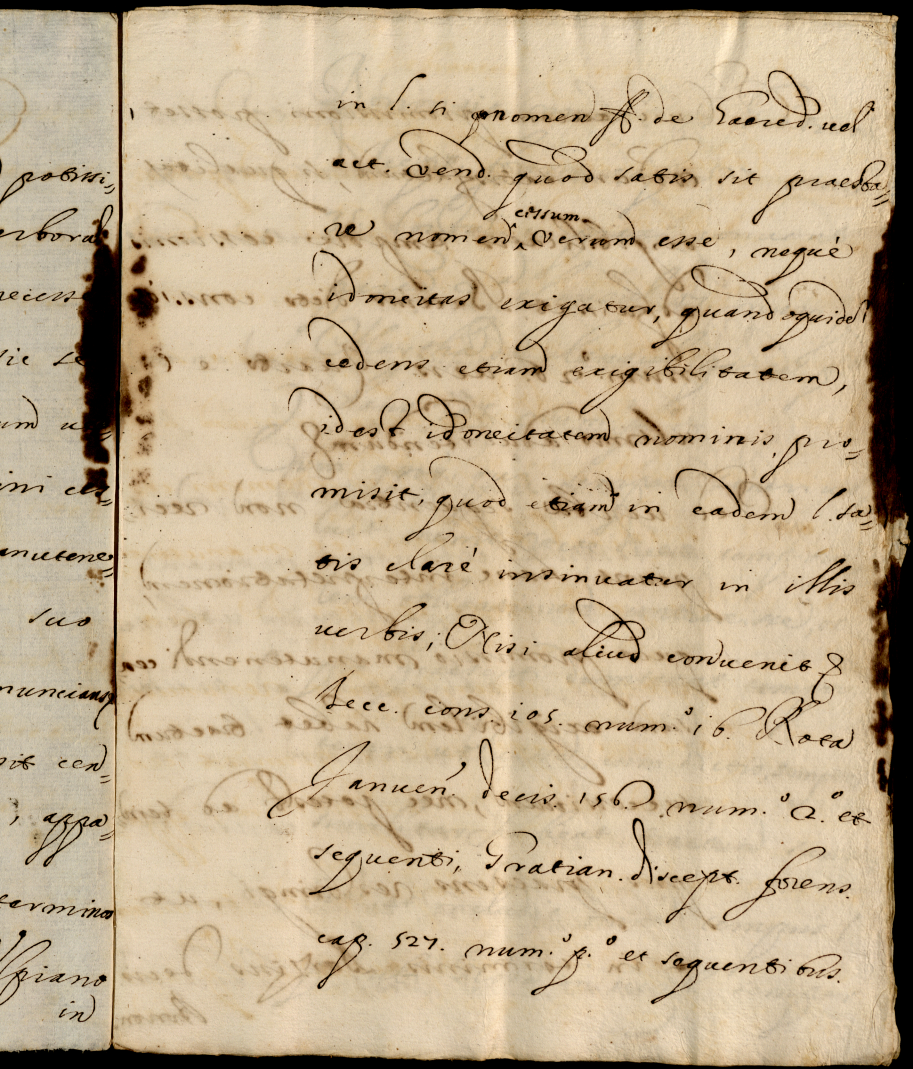 potissi=
erbora
necess
sic se
um u
ini
anutene=
suo
nuncians
sit cen=
, appa=
termino
in
in l. si nomen ff. de haered. uel
act. vend. quod satis sit praesta=
re nomen cessum verum esse, neque
idoneitas exigatur, quandoquidem
cedens etiam exigibilitatem,
idest idoneitatem nominis, pro=
misit, quod etiam in eadem l. sa=
tis claré insinuatur in illis
uerbis; Nisi aliud conuenit
Becc. cons. 105. num.° 16. Rota
Januen. decis. 156. num.° 2.° et
sequenti, Gratian. discept. forens.
cap. 527. num.° p.° et sequentibus.